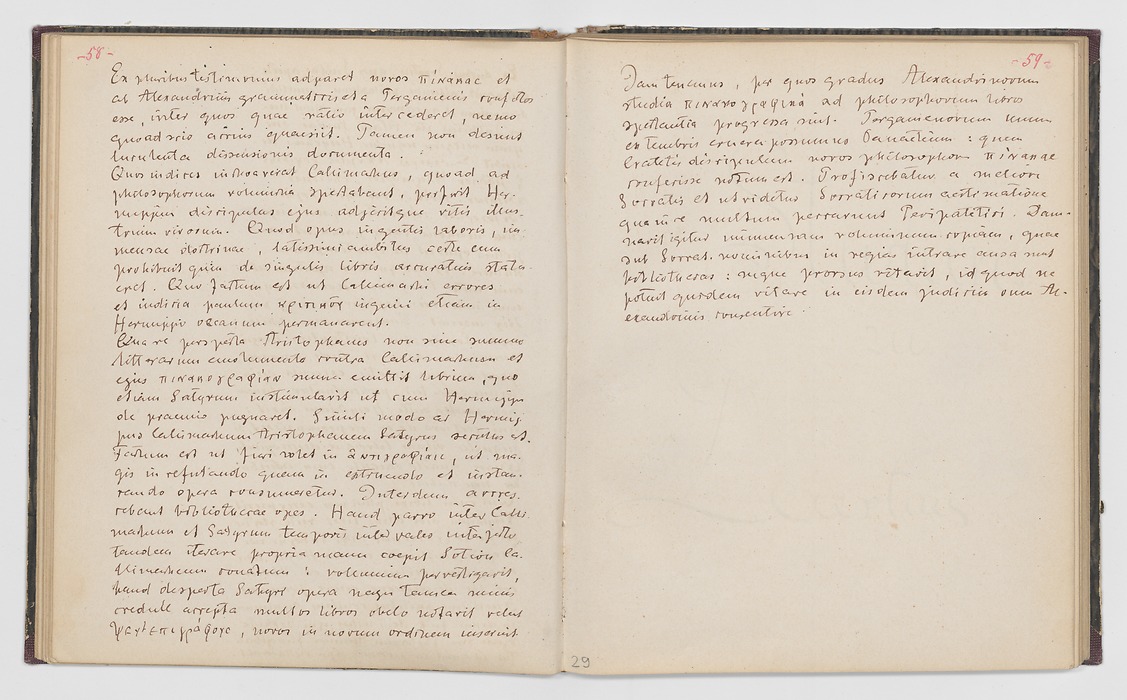 -58-
Ex pluribus testimoniis adparet novos πίνακας et
ab Alexandrinis grammaticis et a Pergamenis confectos
esse, inter quos quae ratio intercederet, nemo
quoad scio acrius quaesivit. Tamen non desunt
luculenta dissensionis documenta.
Quos indices inchoaverat Callimachus, quoad ad
philosophorum volumina spectabant, perfecit Her-
mippum discipulus ejus adjecitque vitis illus-
trium virorum. Quod opus ingentis laboris, im
mensae doctrinae, latissimi ambitus certe eum
prohibuit quin de singulis libris accuratius statu
eret. Quo factum est ut Callimachi errores
et indicia paulum κριτικὸν ingenii etiam in
Hermippi operum permanerent.
Quare perspecta Aristophanes non sine summo
litterarum emolumento contra Callimachum et
ejus πινακογραφίαν summ emittit librum, quo
etiam Satyrum instimularit ut cum Hermippo
de praemio pugnaret. Simili modo ac Hermip
pus Callimachum Aristophanem Satyrus secutus est.
Factum est ut fieri solet in ἀντιγραφίαις, ut ma-
gis in refutando quam in extruendo et instau-
rando opera consumeretur. Interdum accres-
cebant bibliothecae opes. Haud parvo inter Calli
machum et Satyrum temporis intervallo interjecto
tandem iterare propria manu coepit Sotion Ca-
llimacheum conatum: volumina pervestigavit,
haud despecta Satyri opera neque tamen nimis
credule accepta multos libros obelo notavit velut
ψευδεπιγράφους, novos in novum ordinem inseruit
-59-
Jam tenemus, per quos gradus Alexandrinorum
studia πινακογραφικά ad philosophorum libros
spectantia progressa sint. Pergamenorum unum
ex tenebris eruere possumus Panaetium: quem
Cratetis discipulum novos philosophorum πίνακας
confecisse notum est. Proficiscebatur a meliore
Socratis et ut videtur Socraticorum aestimatione
qua in re multum peccarunt Peripatetici. Dam-
navit igitur immensam voluminum copiam, quae
sub Socrat. nominibus in regias intrare ausa sunt
bibliothecas: neque prorsus vitavit, id quod ne
potuit quidem vitare in eisdem judiciis cum Al-
exandrinis consentire.
29